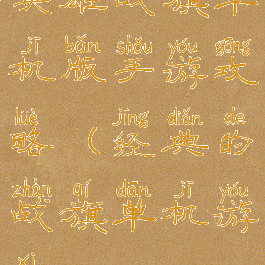 英雄战旗单
jī bǎn shǒu yóu gōng
机版手游攻
lüè jīng diǎn de
略（经典的
zhàn qí dān jī yóu
战旗单机游
xì